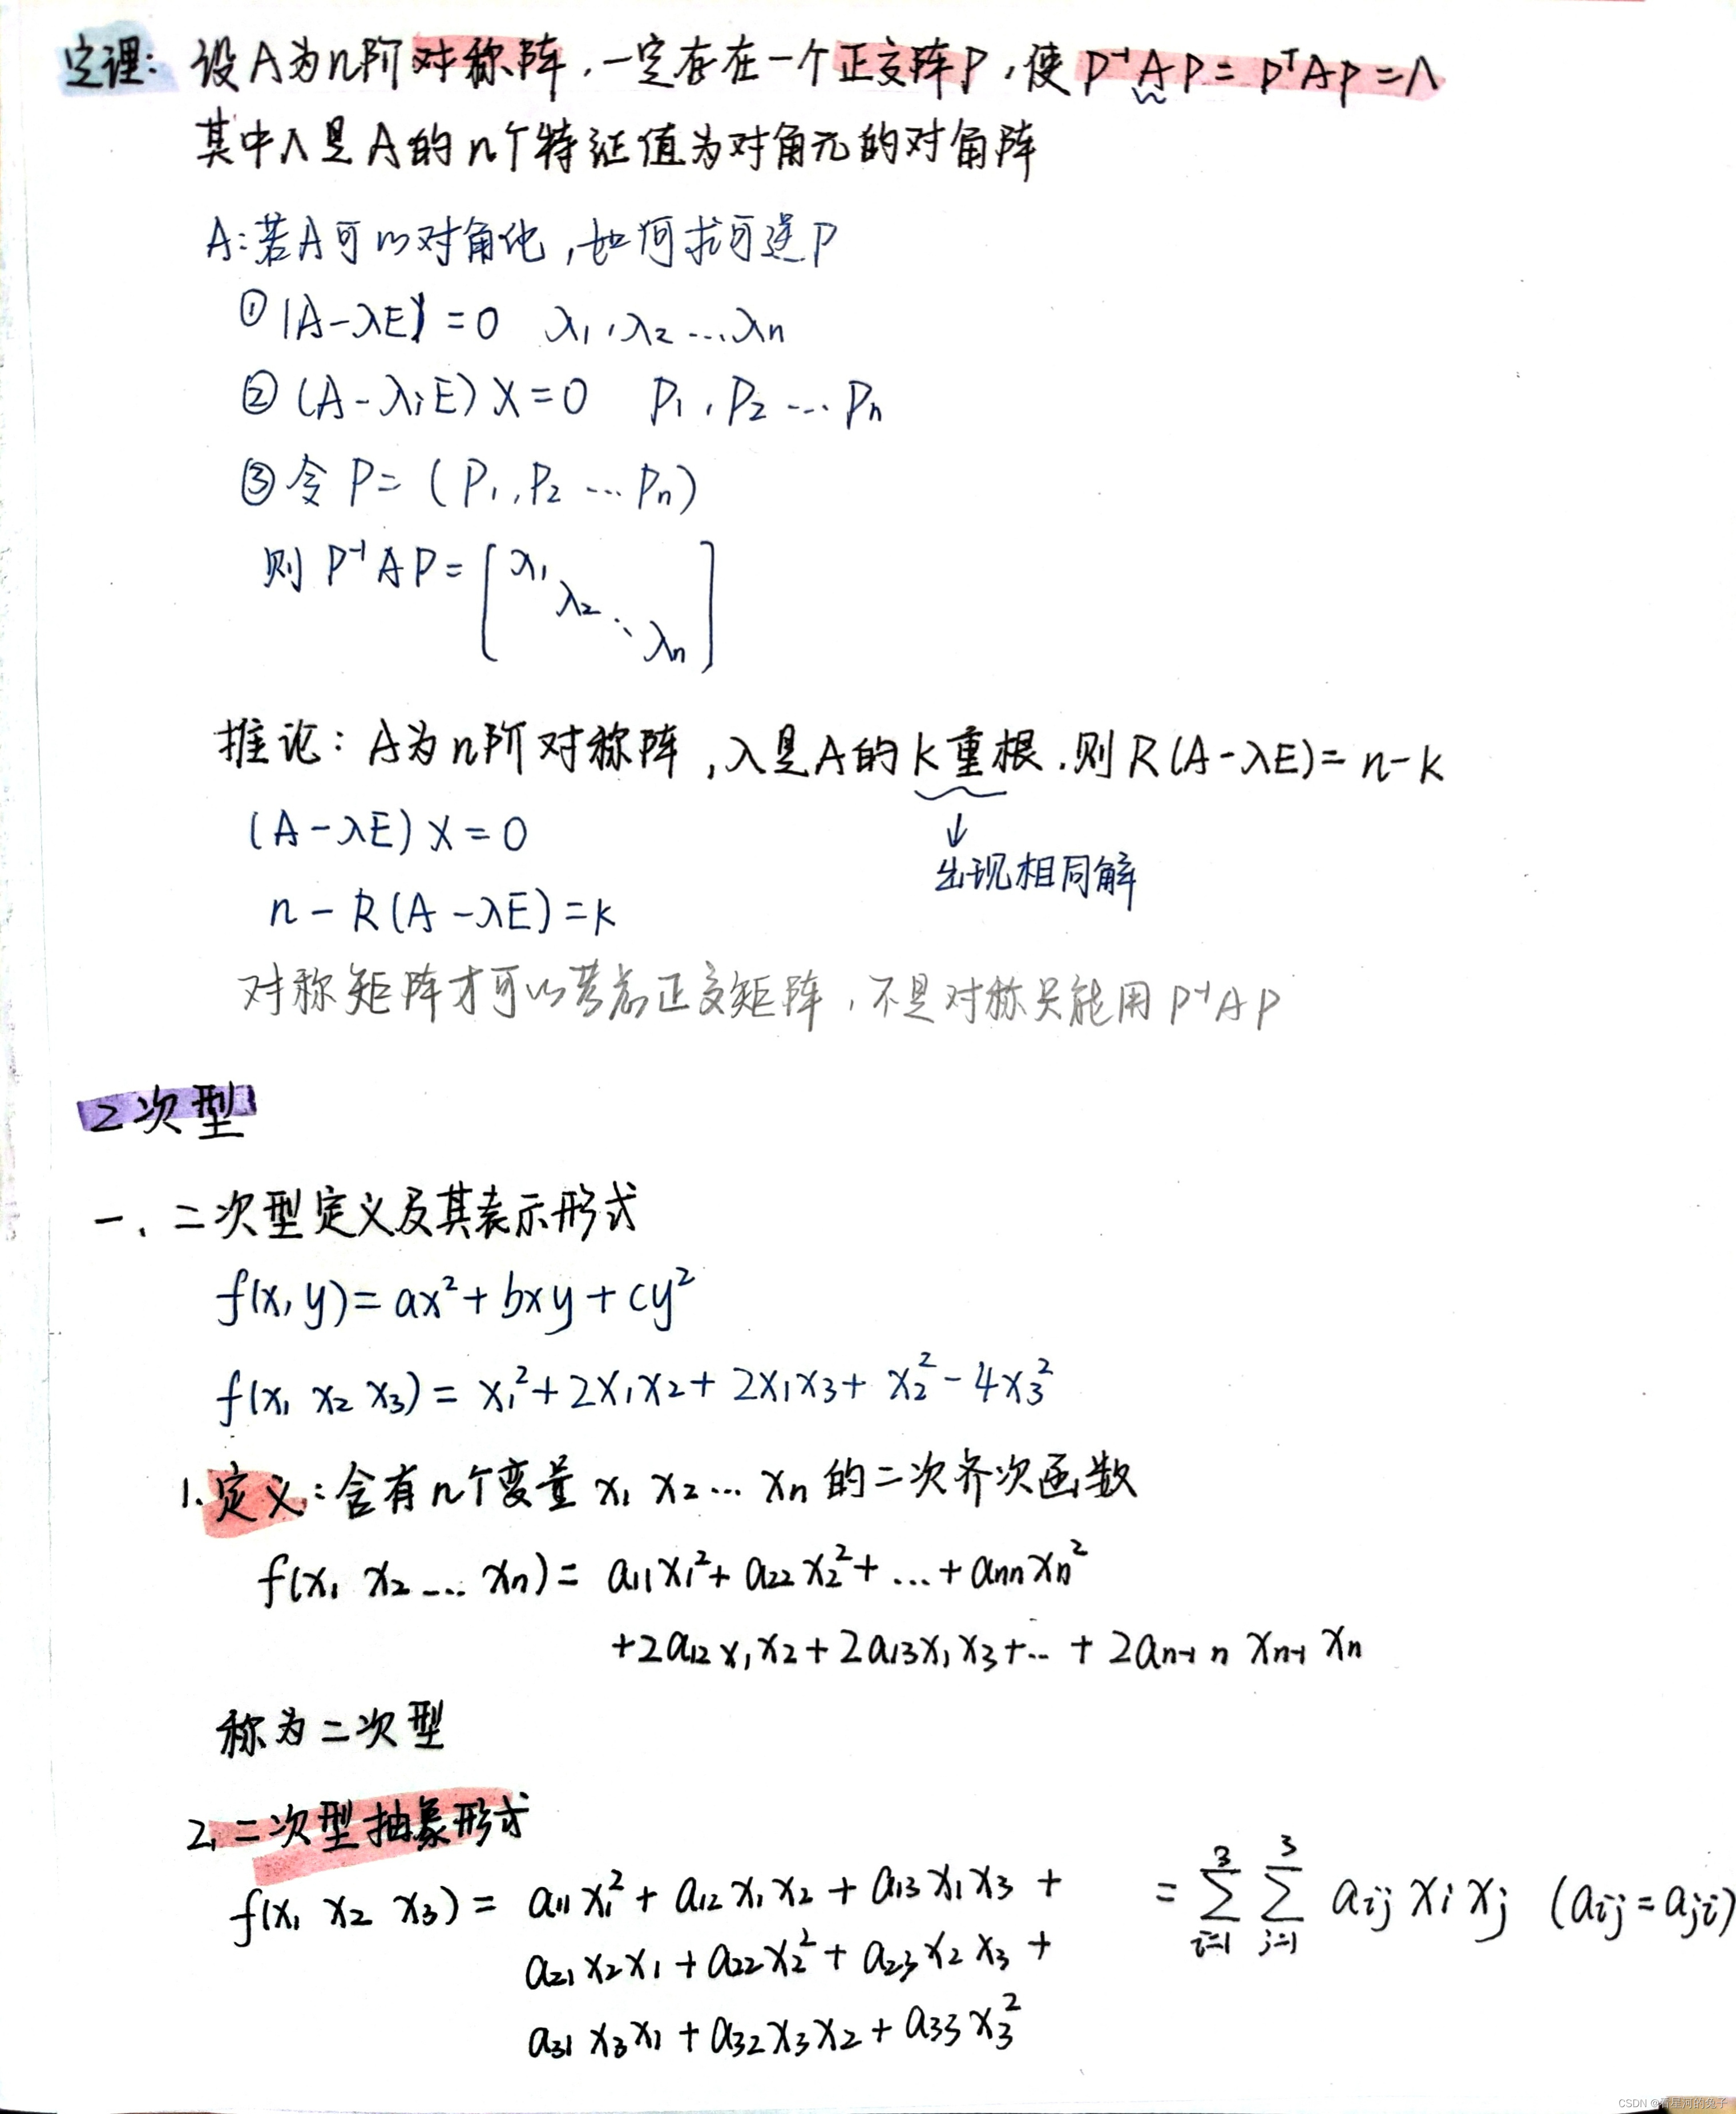 定理: 设A为n阶对称阵,一定存在一个正交阵P,使P⁻¹AP=PᵀAP=Λ
其中Λ是A的n个特征值为对角元的对角阵
A:若A可以对角化,如何求可逆P
①|A-λE|=0 λ₁,λ₂...λn
②(A-λiE)X=0 P₁,P₂...Pn
③令P=(P₁,P₂...Pn)
则P⁻¹AP=[λ₁ λ₂ ⋱ λn]
推论:A为n阶对称阵,λ是A的k重根.则R(A-λE)=n-k
(A-λE)X=0
↓
出现相同解
n-R(A-λE)=k
对称矩阵才可以考虑正交矩阵,不是对称只能用P⁻¹AP
2次型
一、二次型定义及其表示形式
f(x,y)=ax²+bxy+cy²
f(x₁ x₂ x₃)=x₁²+2x₁x₂+2x₁x₃+x₂²-4x₃²
1.定义:含有n个变量x₁ x₂...xn的二次齐次函数
f(x₁ x₂...xn)=a₁₁x₁²+a₂₂x₂²+...+annxn²
+2a₁₂x₁x₂+2a₁₃x₁x₃+...+2an-1 n xn-1 xn
称为二次型
2.二次型抽象形式
f(x₁ x₂ x₃)=a₁₁x₁²+a₁₂x₁x₂+a₁₃x₁x₃+ =∑³i=1 ∑³j=1 aij xi xj (aij=aji)
a₂₁x₂x₁+a₂₂x₂²+a₂₃x₂x₃+
a₃₁x₃x₁+a₃₂x₃x₂+a₃₃x₃²
CSDN @看星河的兔子